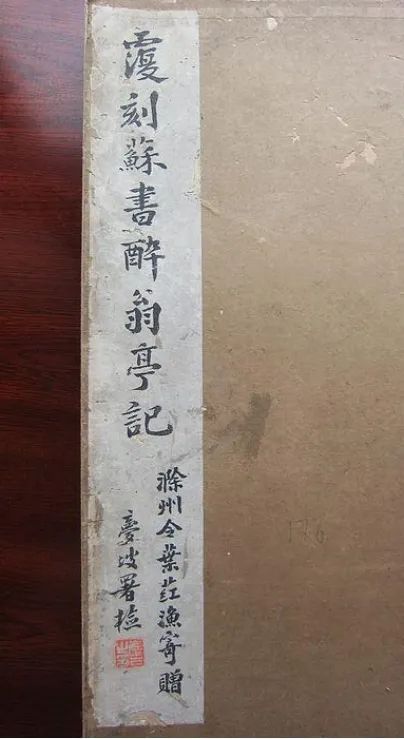 覆刻蘇書醉翁亭記
滁州令葉葒漁寄贈
夢坡署檢
176